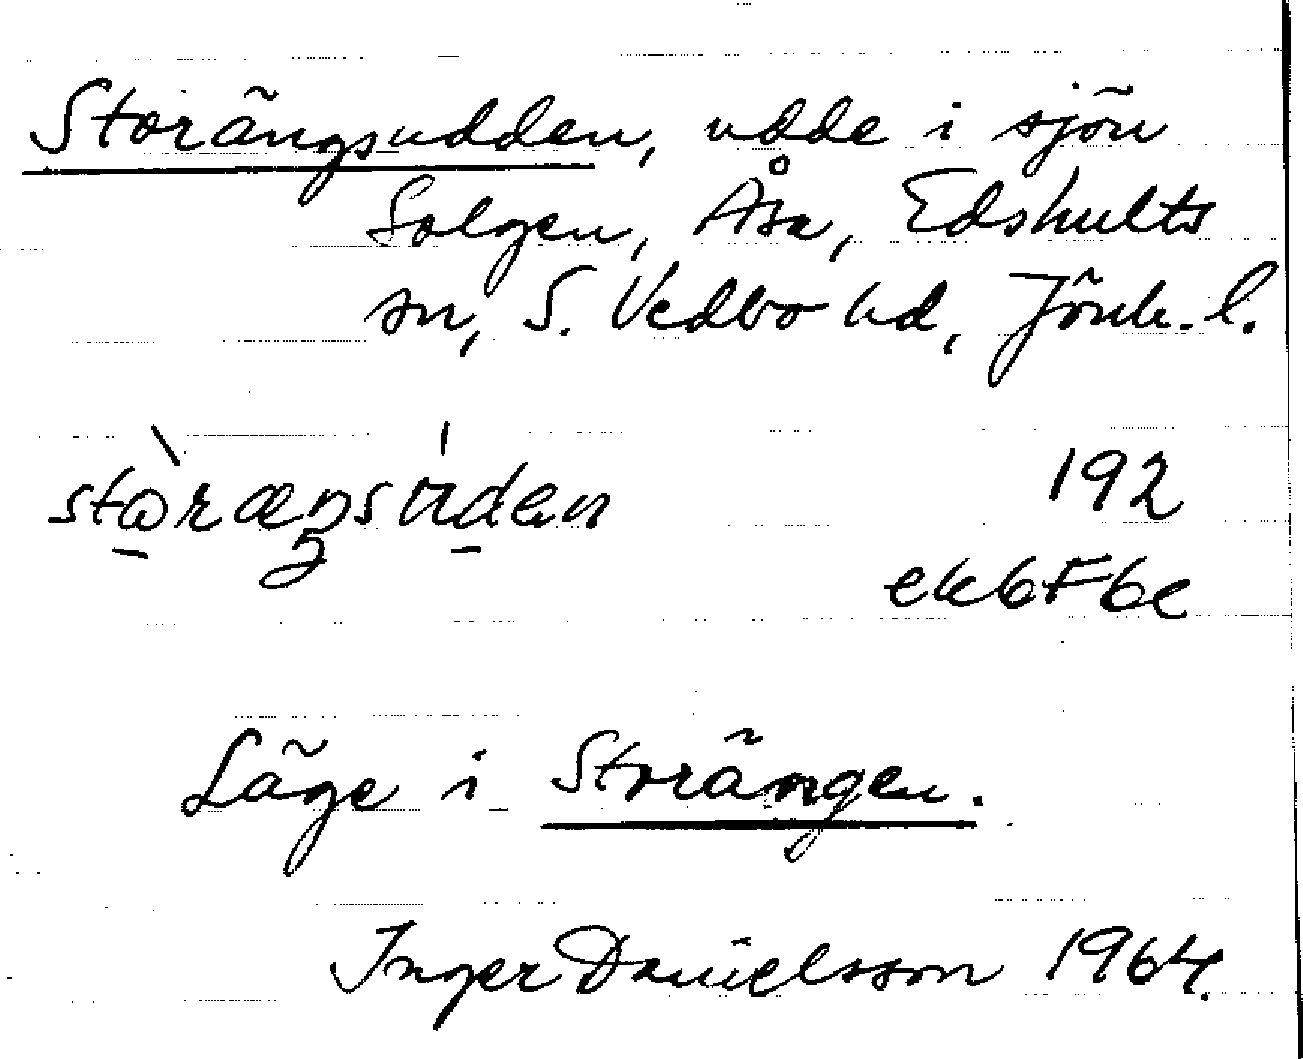 Storängsudden, udde i sjön
Solgen, Åsa, Edshults
sn, S. Vedbo hd, Jönk. l.
192
ek6F6e
Läge i Storängen.
Inger Danielsson 1964.